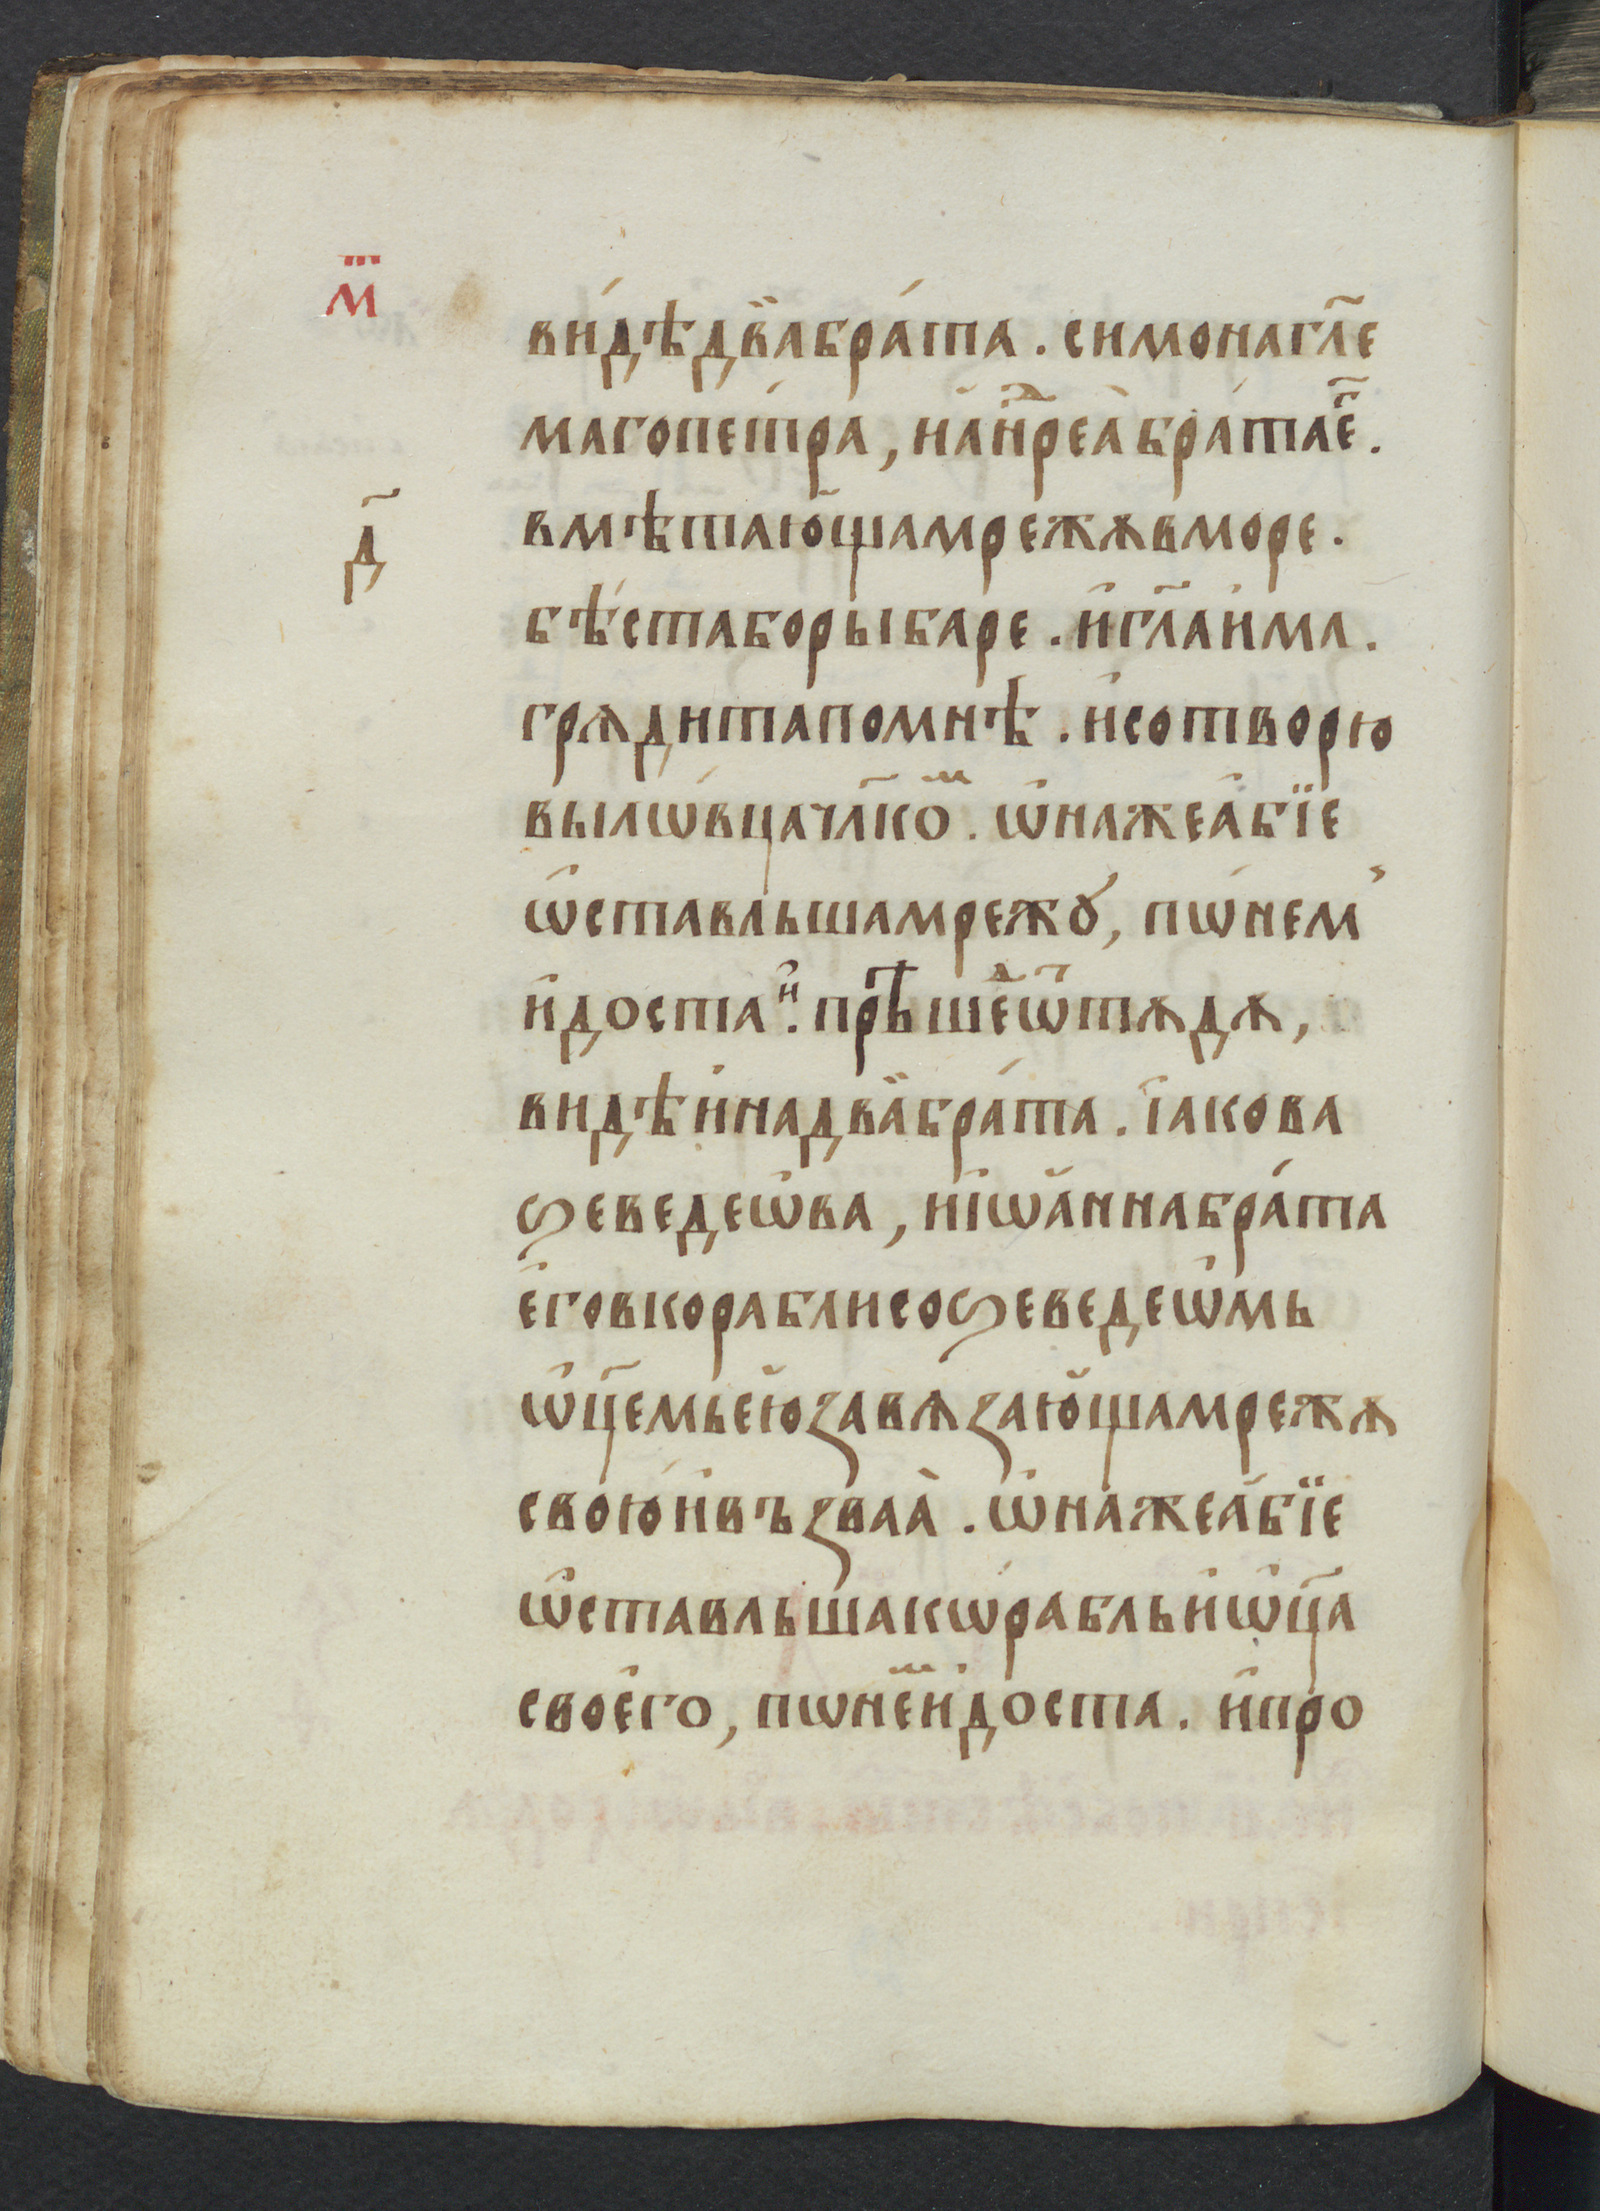 м҃
ви́дѣ два̏ бра́та . симона гл҃е
маго петра , и҆ а҆н҃дреа҆ бра́та е҆г҃ .
д҃
вмѣтаю҆ща мрежѫ в море .
бѣ́ста бо рыбаре . и҆ гл҃а и҆ма .
грѧдита по мнѣ . и҆ сотворю
вы лѡ́вца чл҃кѡⷨ . ѡ҆на же а҆бїе
ѡ҆ставльша мрежꙋ , пѡ нем
и҆доста . и҆ прⷣѣшеⷣ ѿтѫдѫ ,
видѣ и҆на два̏ бра́та . і҆акова
ѕеведеѡ҆ва , и і҆ѡа҆нна бра́та
е҆го в корабли со ѕеведеѡ҆мь
ѡ҆ц҃емь ею҆ завѧзаю҆ща мрежѫ
свою҆ и҆ въз̾ва ѧ҆ . ѡ҆на же а҆бїе
ѡ҆ставльша кѡ́рабль и҆ ѡ҆ц҃а
свое҆го , пѡ неⷨ и҆доста . и҆ про